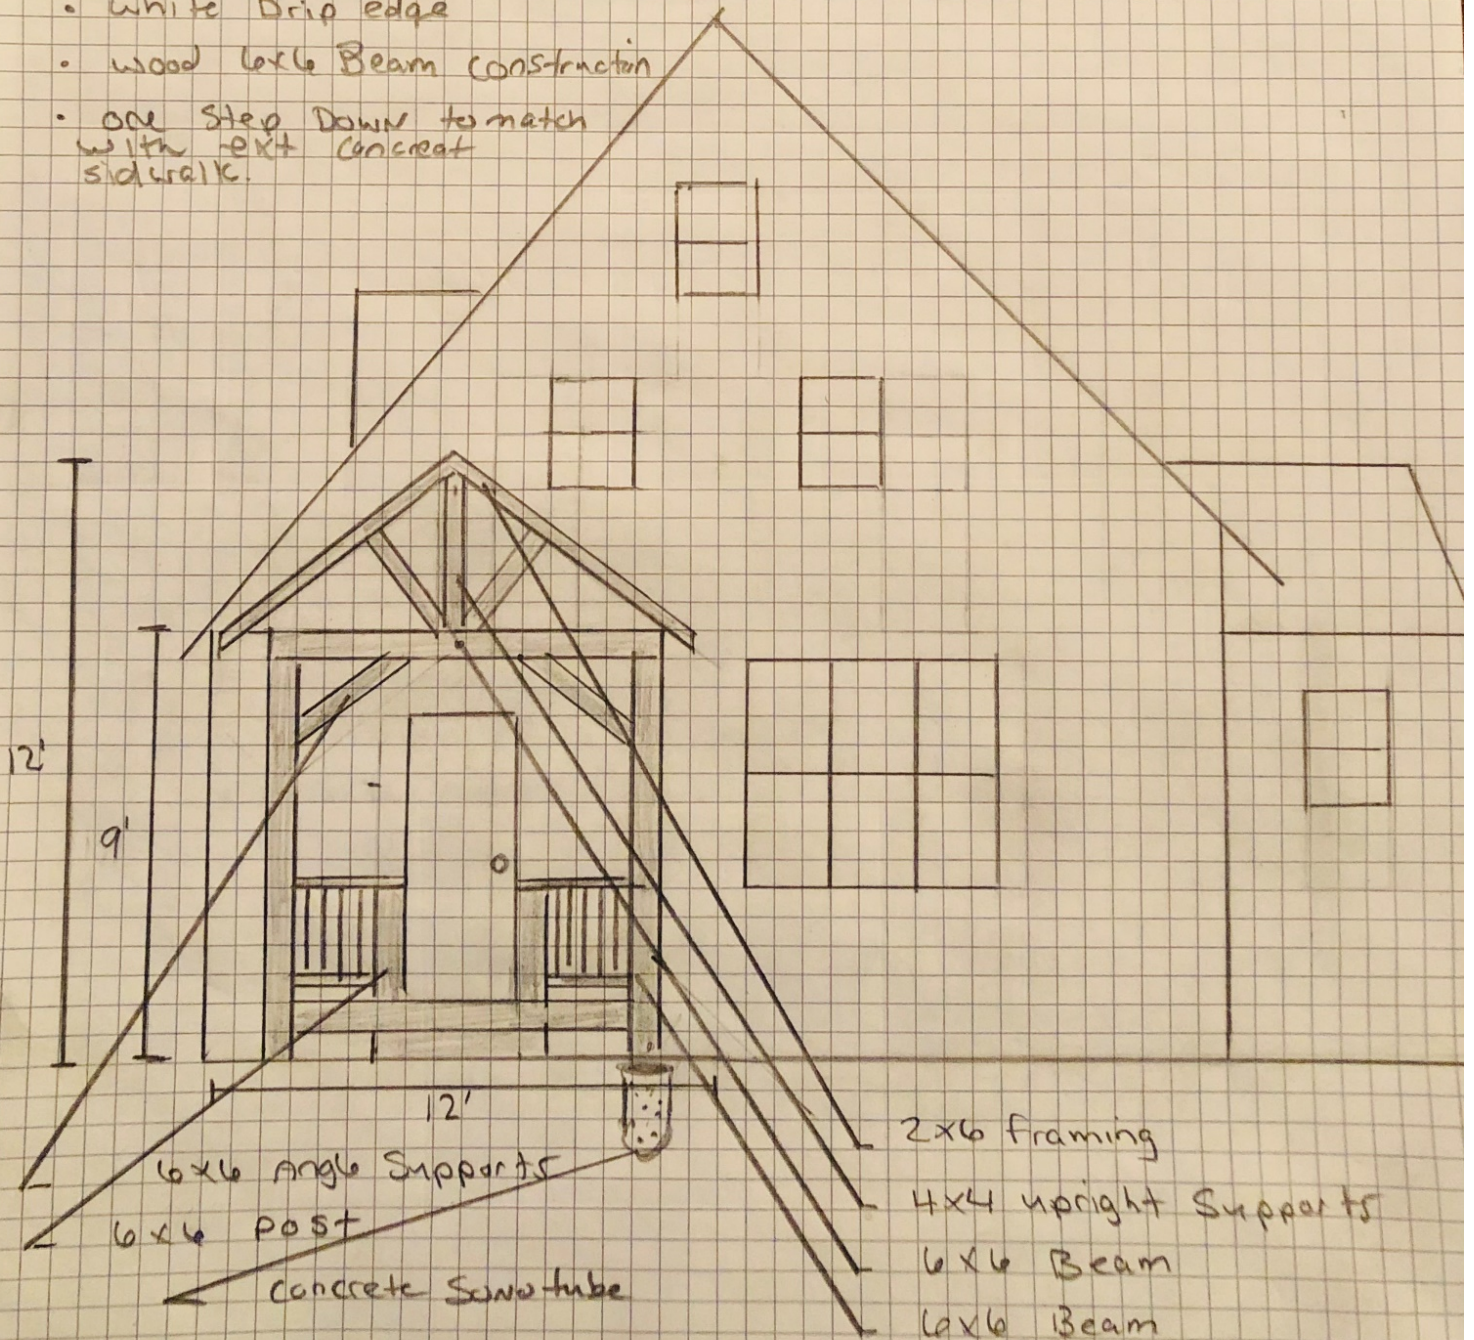 • White Drip edge
• wood 6x6 Beam construction
• one Step Down to match
with ext concreat
sidwalk.
12'
9'
12'
6x6 Angle Supports
6x6 post
concrete Sonotube
2x6 framing
4x4 upright Supports
6x6 Beam
6x6 Beam